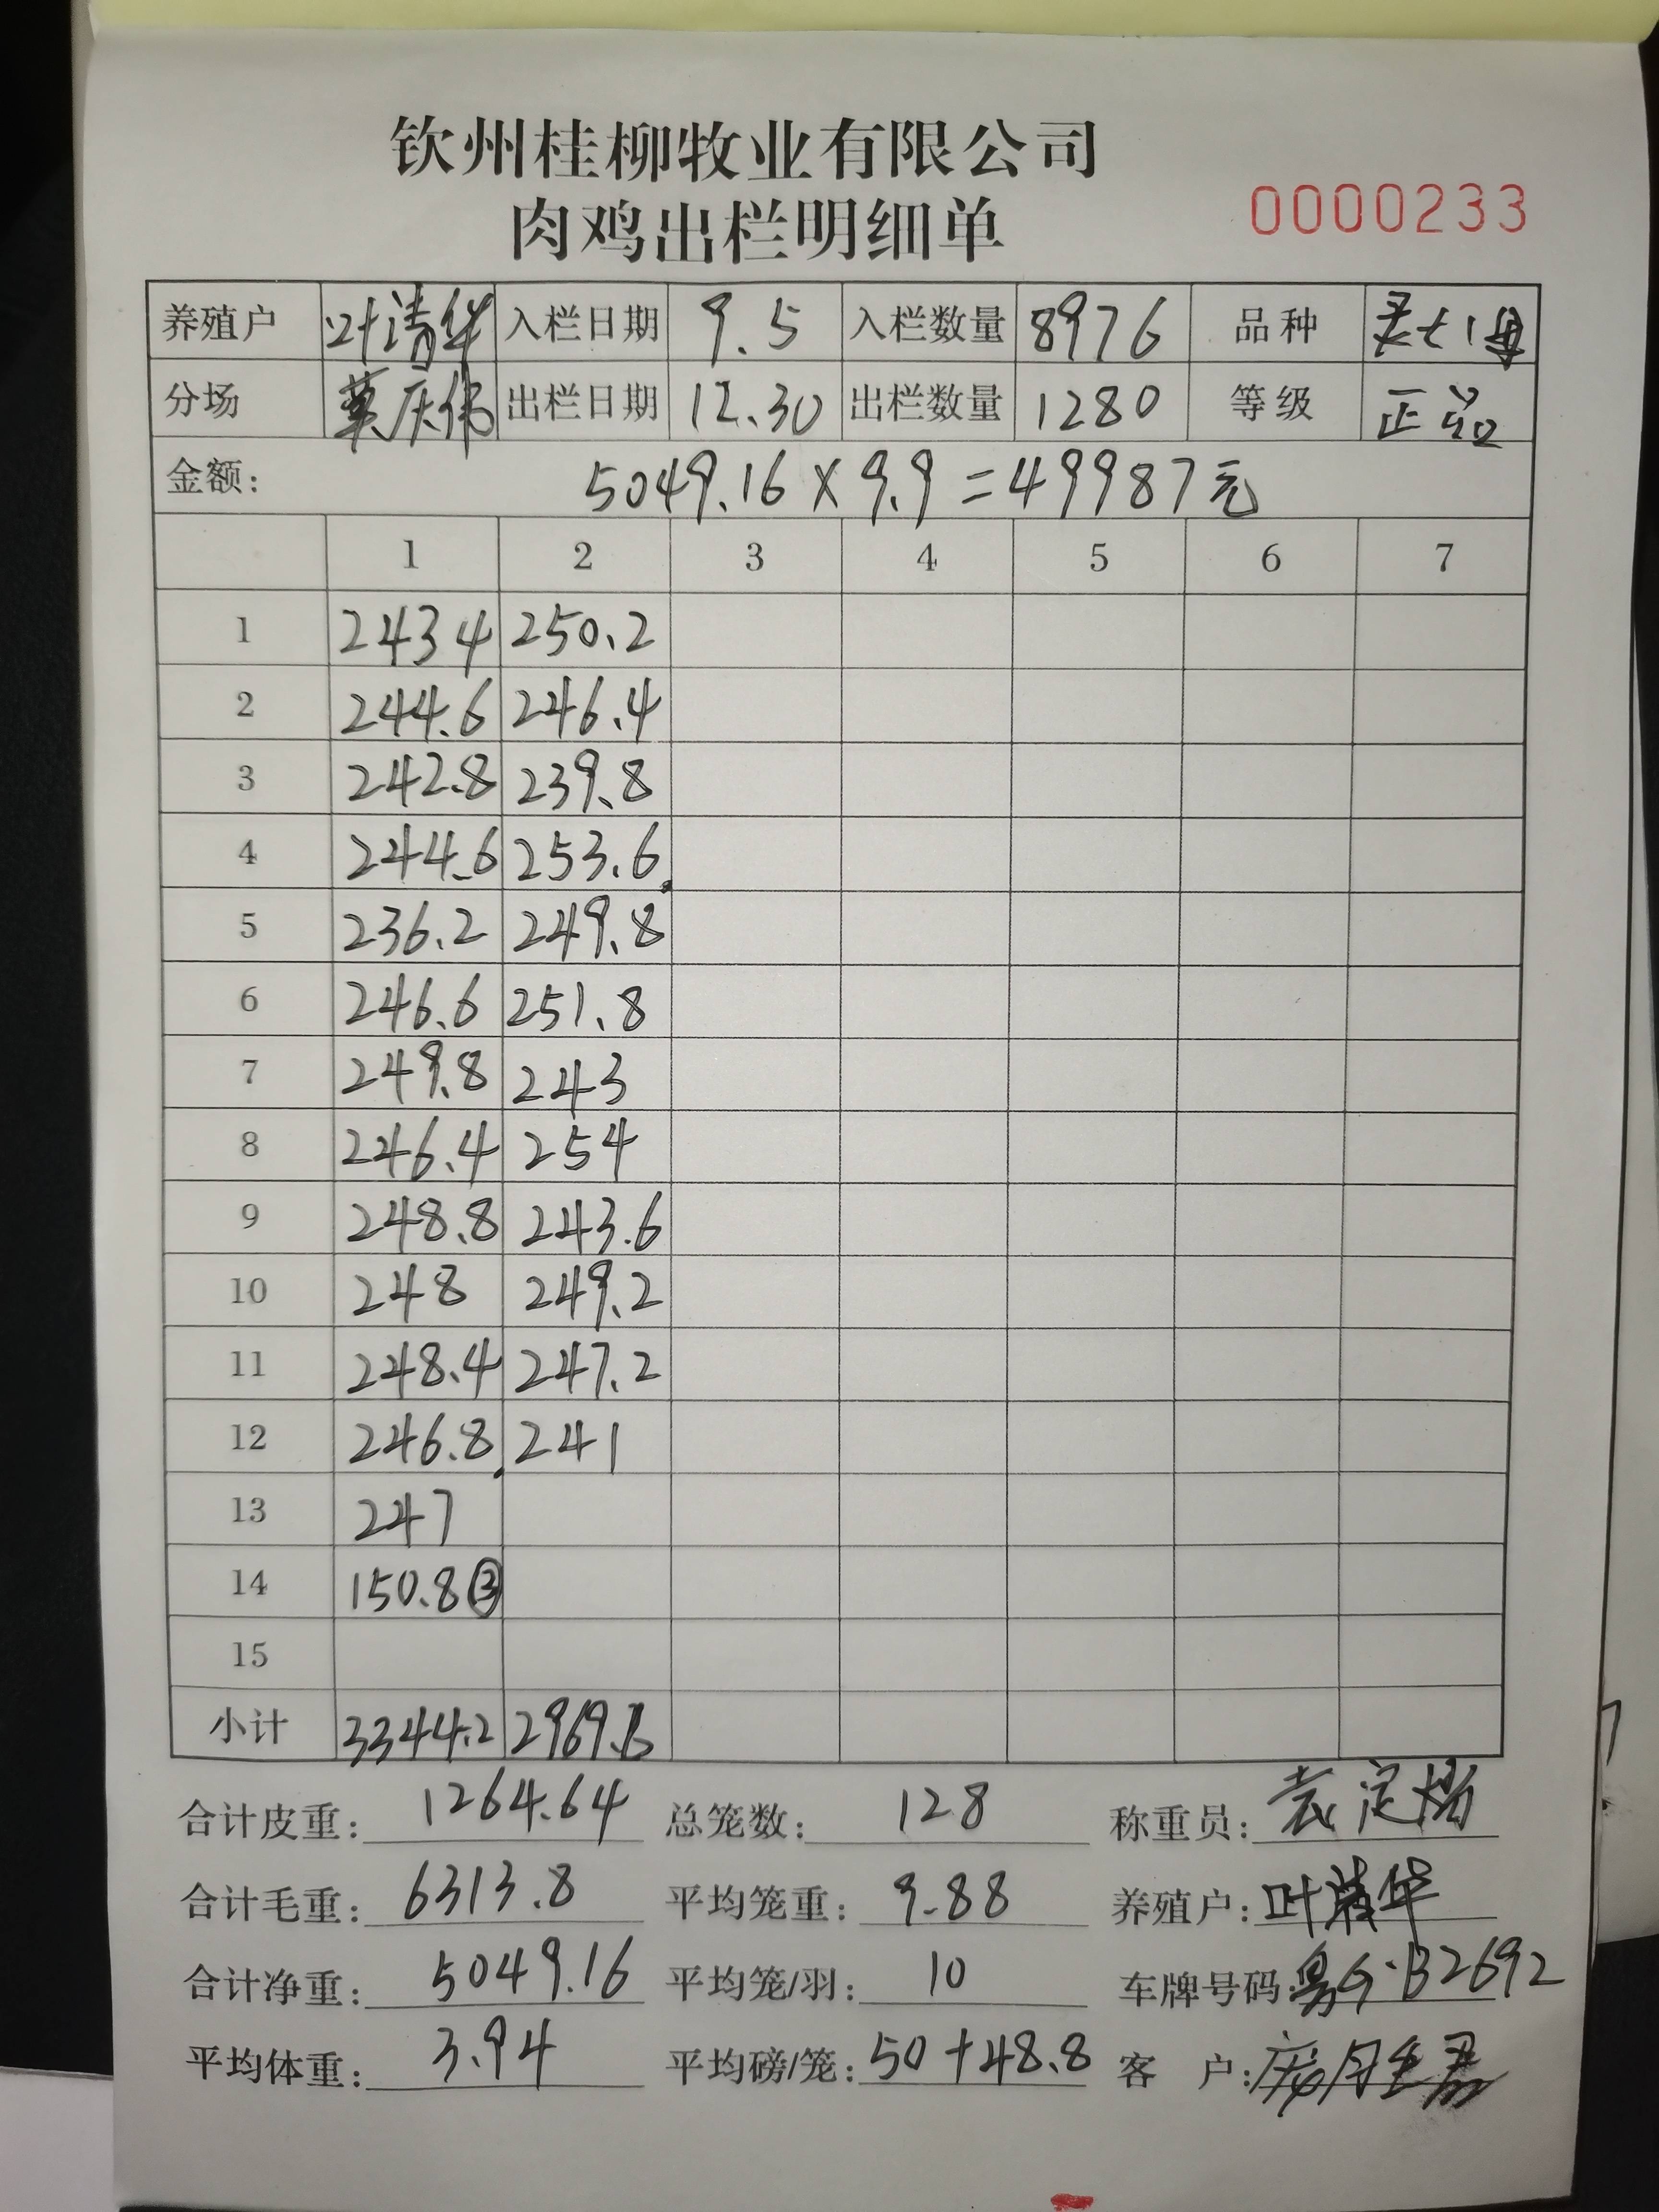 钦州桂柳牧业有限公司
肉鸡出栏明细单
0000233
养殖户 叶清华 入栏日期 9.5 入栏数量 8976 品种
分场 莫庆伟 出栏日期 12.30 出栏数量 1280 等级 正品
金额: 5049.16×9.9=49987元
1 2 3 4 5 6 7
1 2434 250.2
2 244.6 246.4
3 242.8 239.8
4 244.6 253.6
5 236.2 249.8
6 246.6 251.8
7 249.8 243
8 246.4 254
9 248.8 243.6
10 248 249.2
11 248.4 247.2
12 246.8 241
13 247
14 150.8③
15
小计 3344.2 2969.6
合计皮重: 1264.64 总笼数: 128 称重员:
合计毛重: 6313.8 平均笼重: 9.88 养殖户: 叶清华
合计净重: 5049.16 平均笼/羽: 10 车牌号码: 粤G·B2692
平均体重: 3.94 平均磅/笼: 50+48.8 客 户: